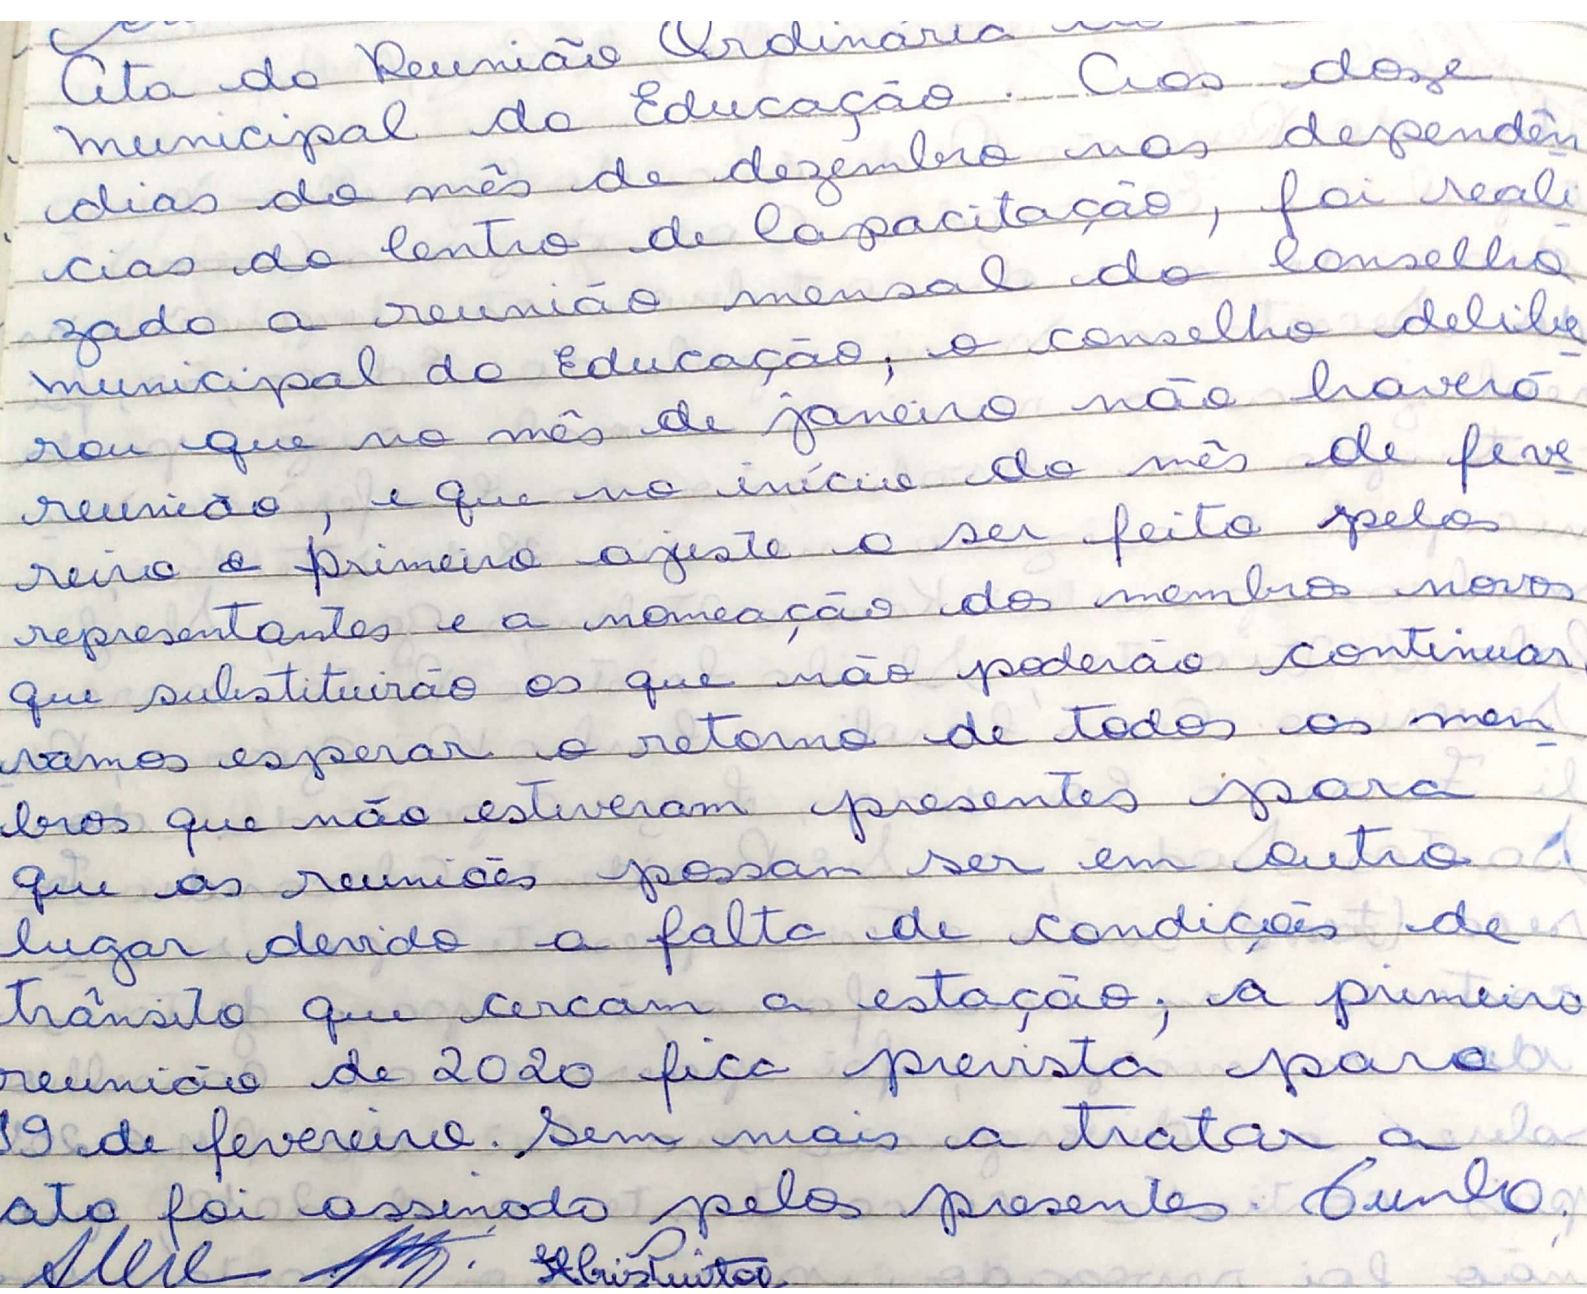 Ata da Reunião Ordinária do
municipal da Educação. Aos doze
dias do mês de dezembro nas dependên
cias do Centro de Capacitação, foi reali
zado a reunião mensal do Conselho
municipal da Educação, o conselho delibe
rou que no mês de janeiro não haverá
reunião, e que no início do mês de feve
reiro o primeiro ajuste a ser feito pelos
representantes e a nomeação dos membros novos
que substituirão os que não poderão continuar,
vamos esperar o retorno de todos os mem
bros que não estiveram presentes para
que as reuniões possam ser em outro
lugar devido a falta de condições de
trânsito que cercam a estação; a primeira
reunião de 2020 fica prevista para
19 de fevereiro. Sem mais a tratar a
ata foi assinado pelos presentes.